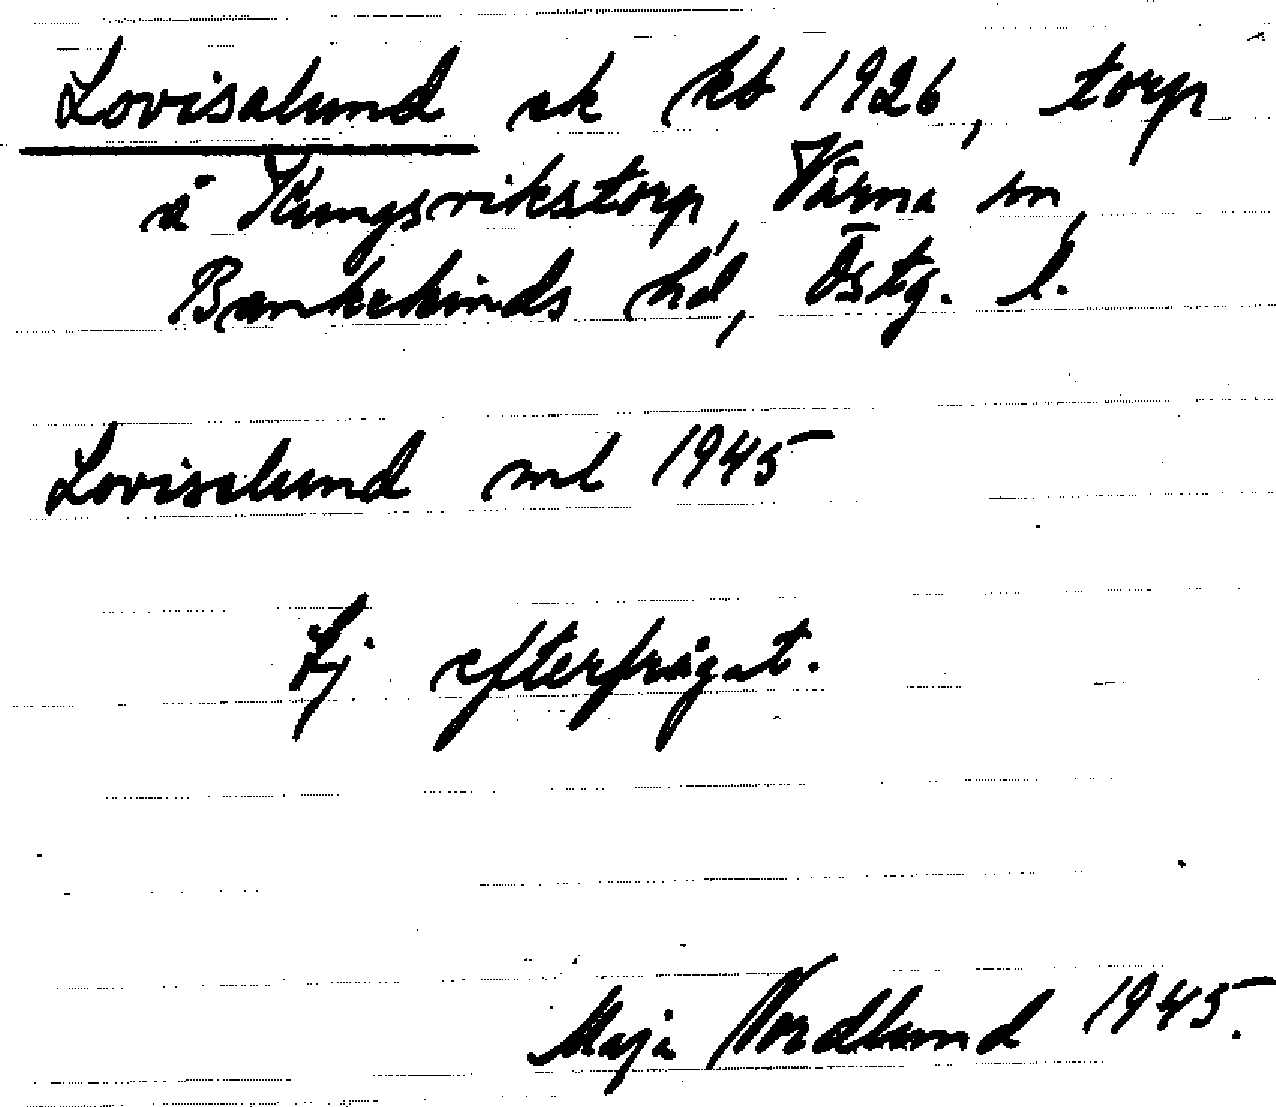 Lovisalund ek kb 1926, torp
å Kungsrikstorp, Värna sn,
Bankekinds hd, Östg. l.
Lovisalund ml 1945
Ej efterfrågat.
Maja Nordlund 1945.